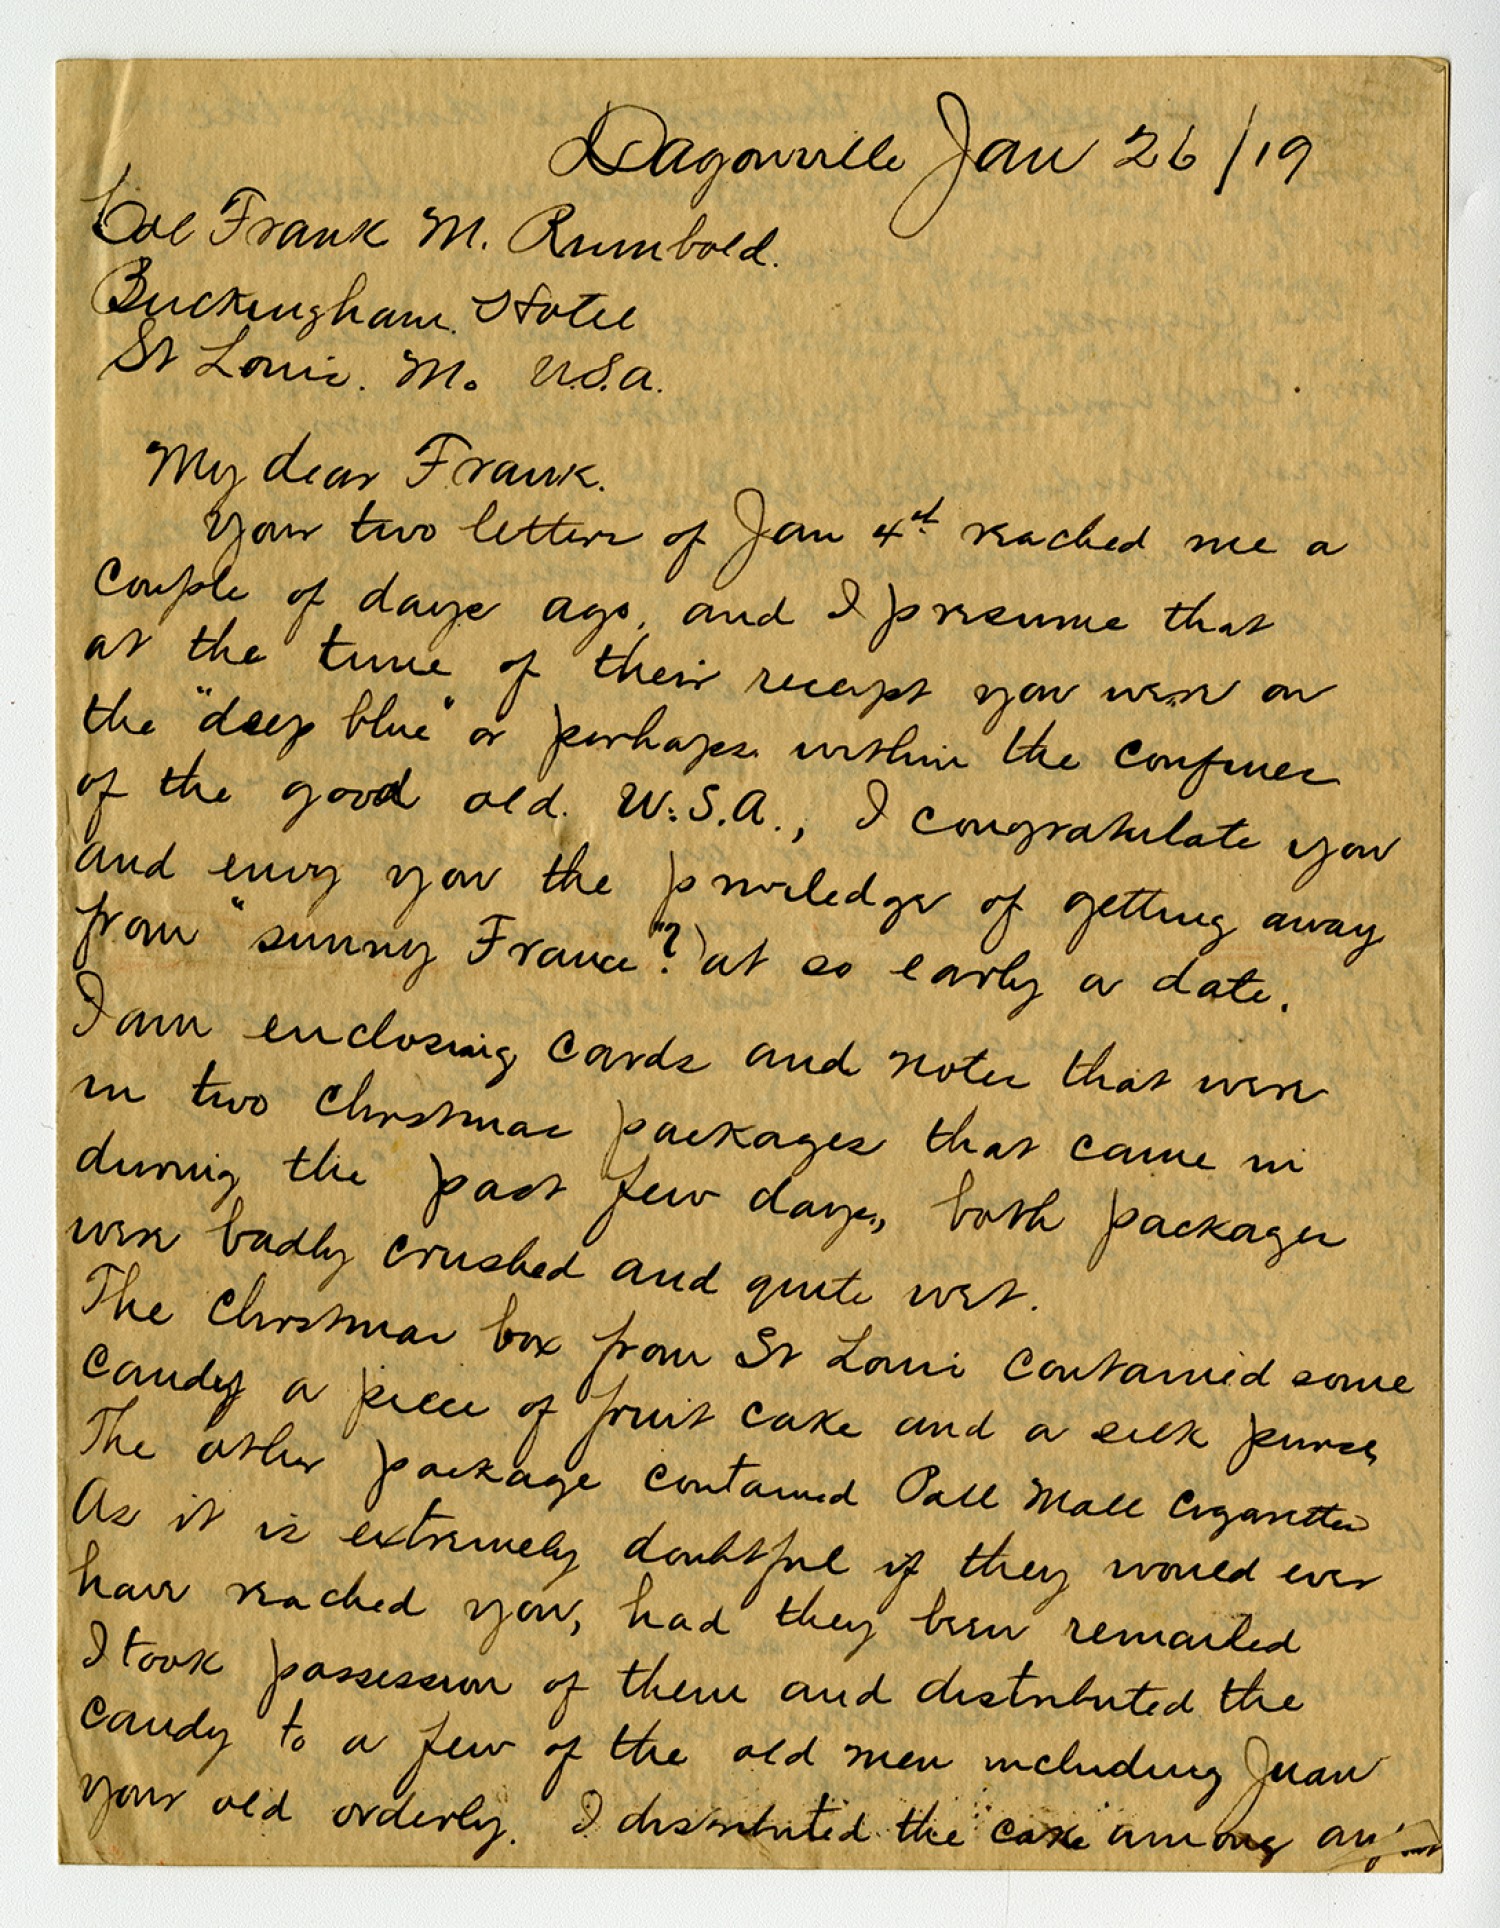 Dagonville Jan 26/19
Col Frank M. Rumbold.
Buckingham. Hotel
St Louis. Mo U.S.A.
My dear Frank.
Your two letters of Jan 4th reached me a
couple of days ago, and I presume that
at the time of their receipt you were on
the "deep blue" or perhaps within the confines
of the good old. U.S.A., I congratulate you
and envy you the priviledge of getting away
from "sunny France"? at so early a date.
I am enclosing cards and notes that were
in two Christmas packages that came in
during the past few days, both packages
were badly crushed and quite wet.
The Christmas box from St Louis contained some
candy a piece of fruit cake and a silk purse,
The other package contained Pall Mall Cigarettes
As it is extremely doubtful if they would ever
have reached you, had they been remailed
I took possession of them and distributed the
candy to a few of the old men including Juan
your old orderly. I distributed the cake among